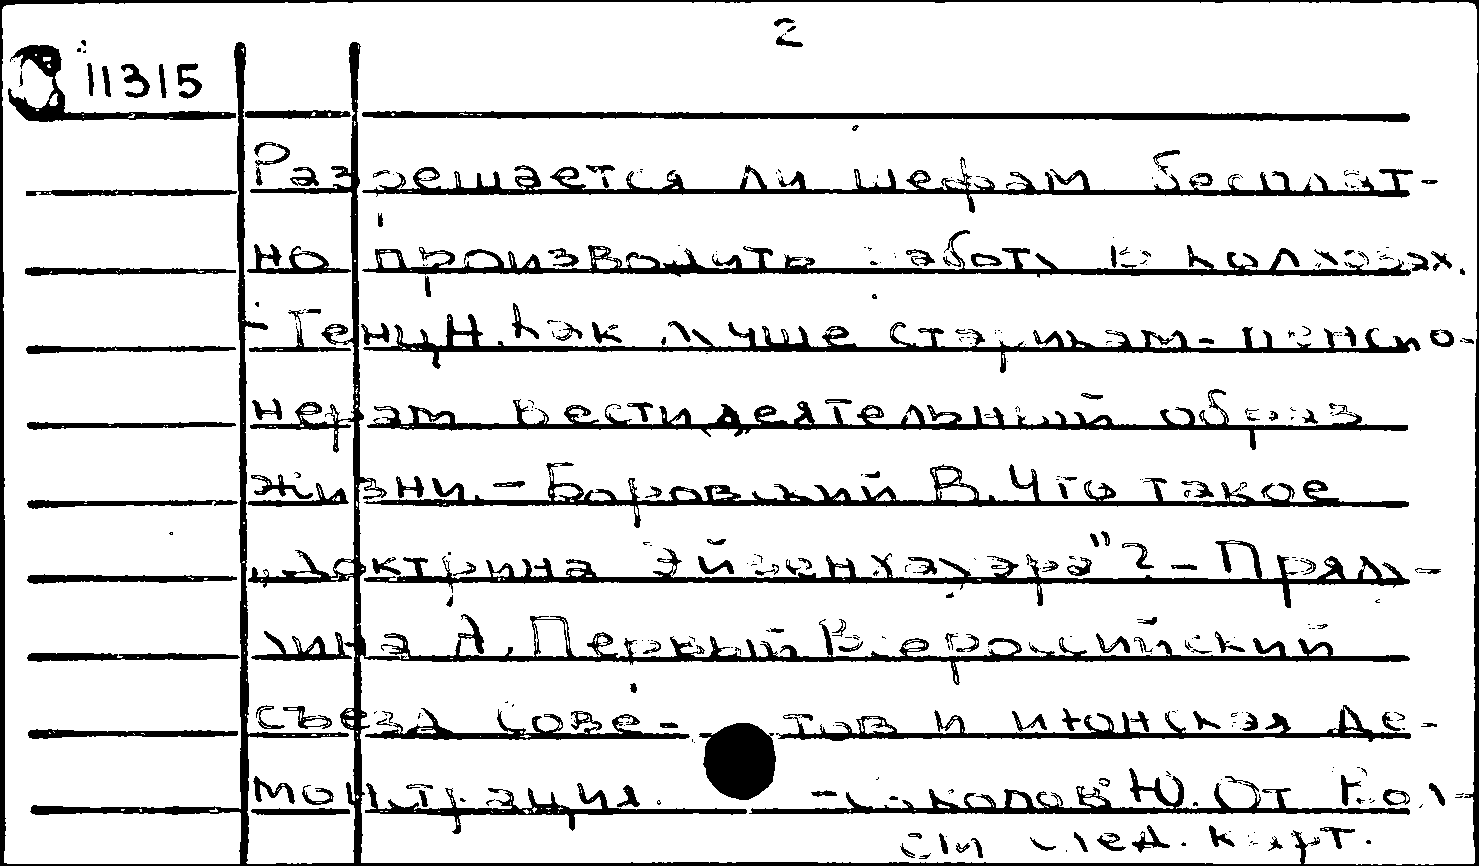 2
11315
Разрешается ли шефам бесплат-
но производить работы в колхозах.
- Генц Н. Как лучше старикам-пенсио-
нерам вести деятельный образ
жизни. - Боровский В. Что такое
„Доктрина Эйзенхауэра"? - Прям-
лина А. Первый Всероссийский
съезд Сове- тов и июнская де-
монстрация. - Соколов Ю. От Кол-
см след. карт.